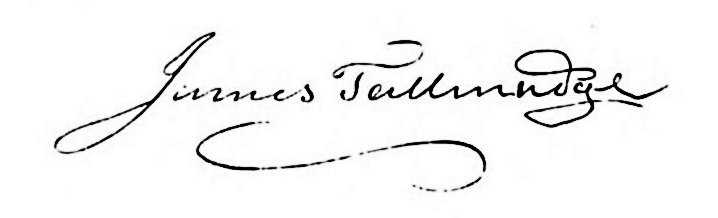 James Tallmadge